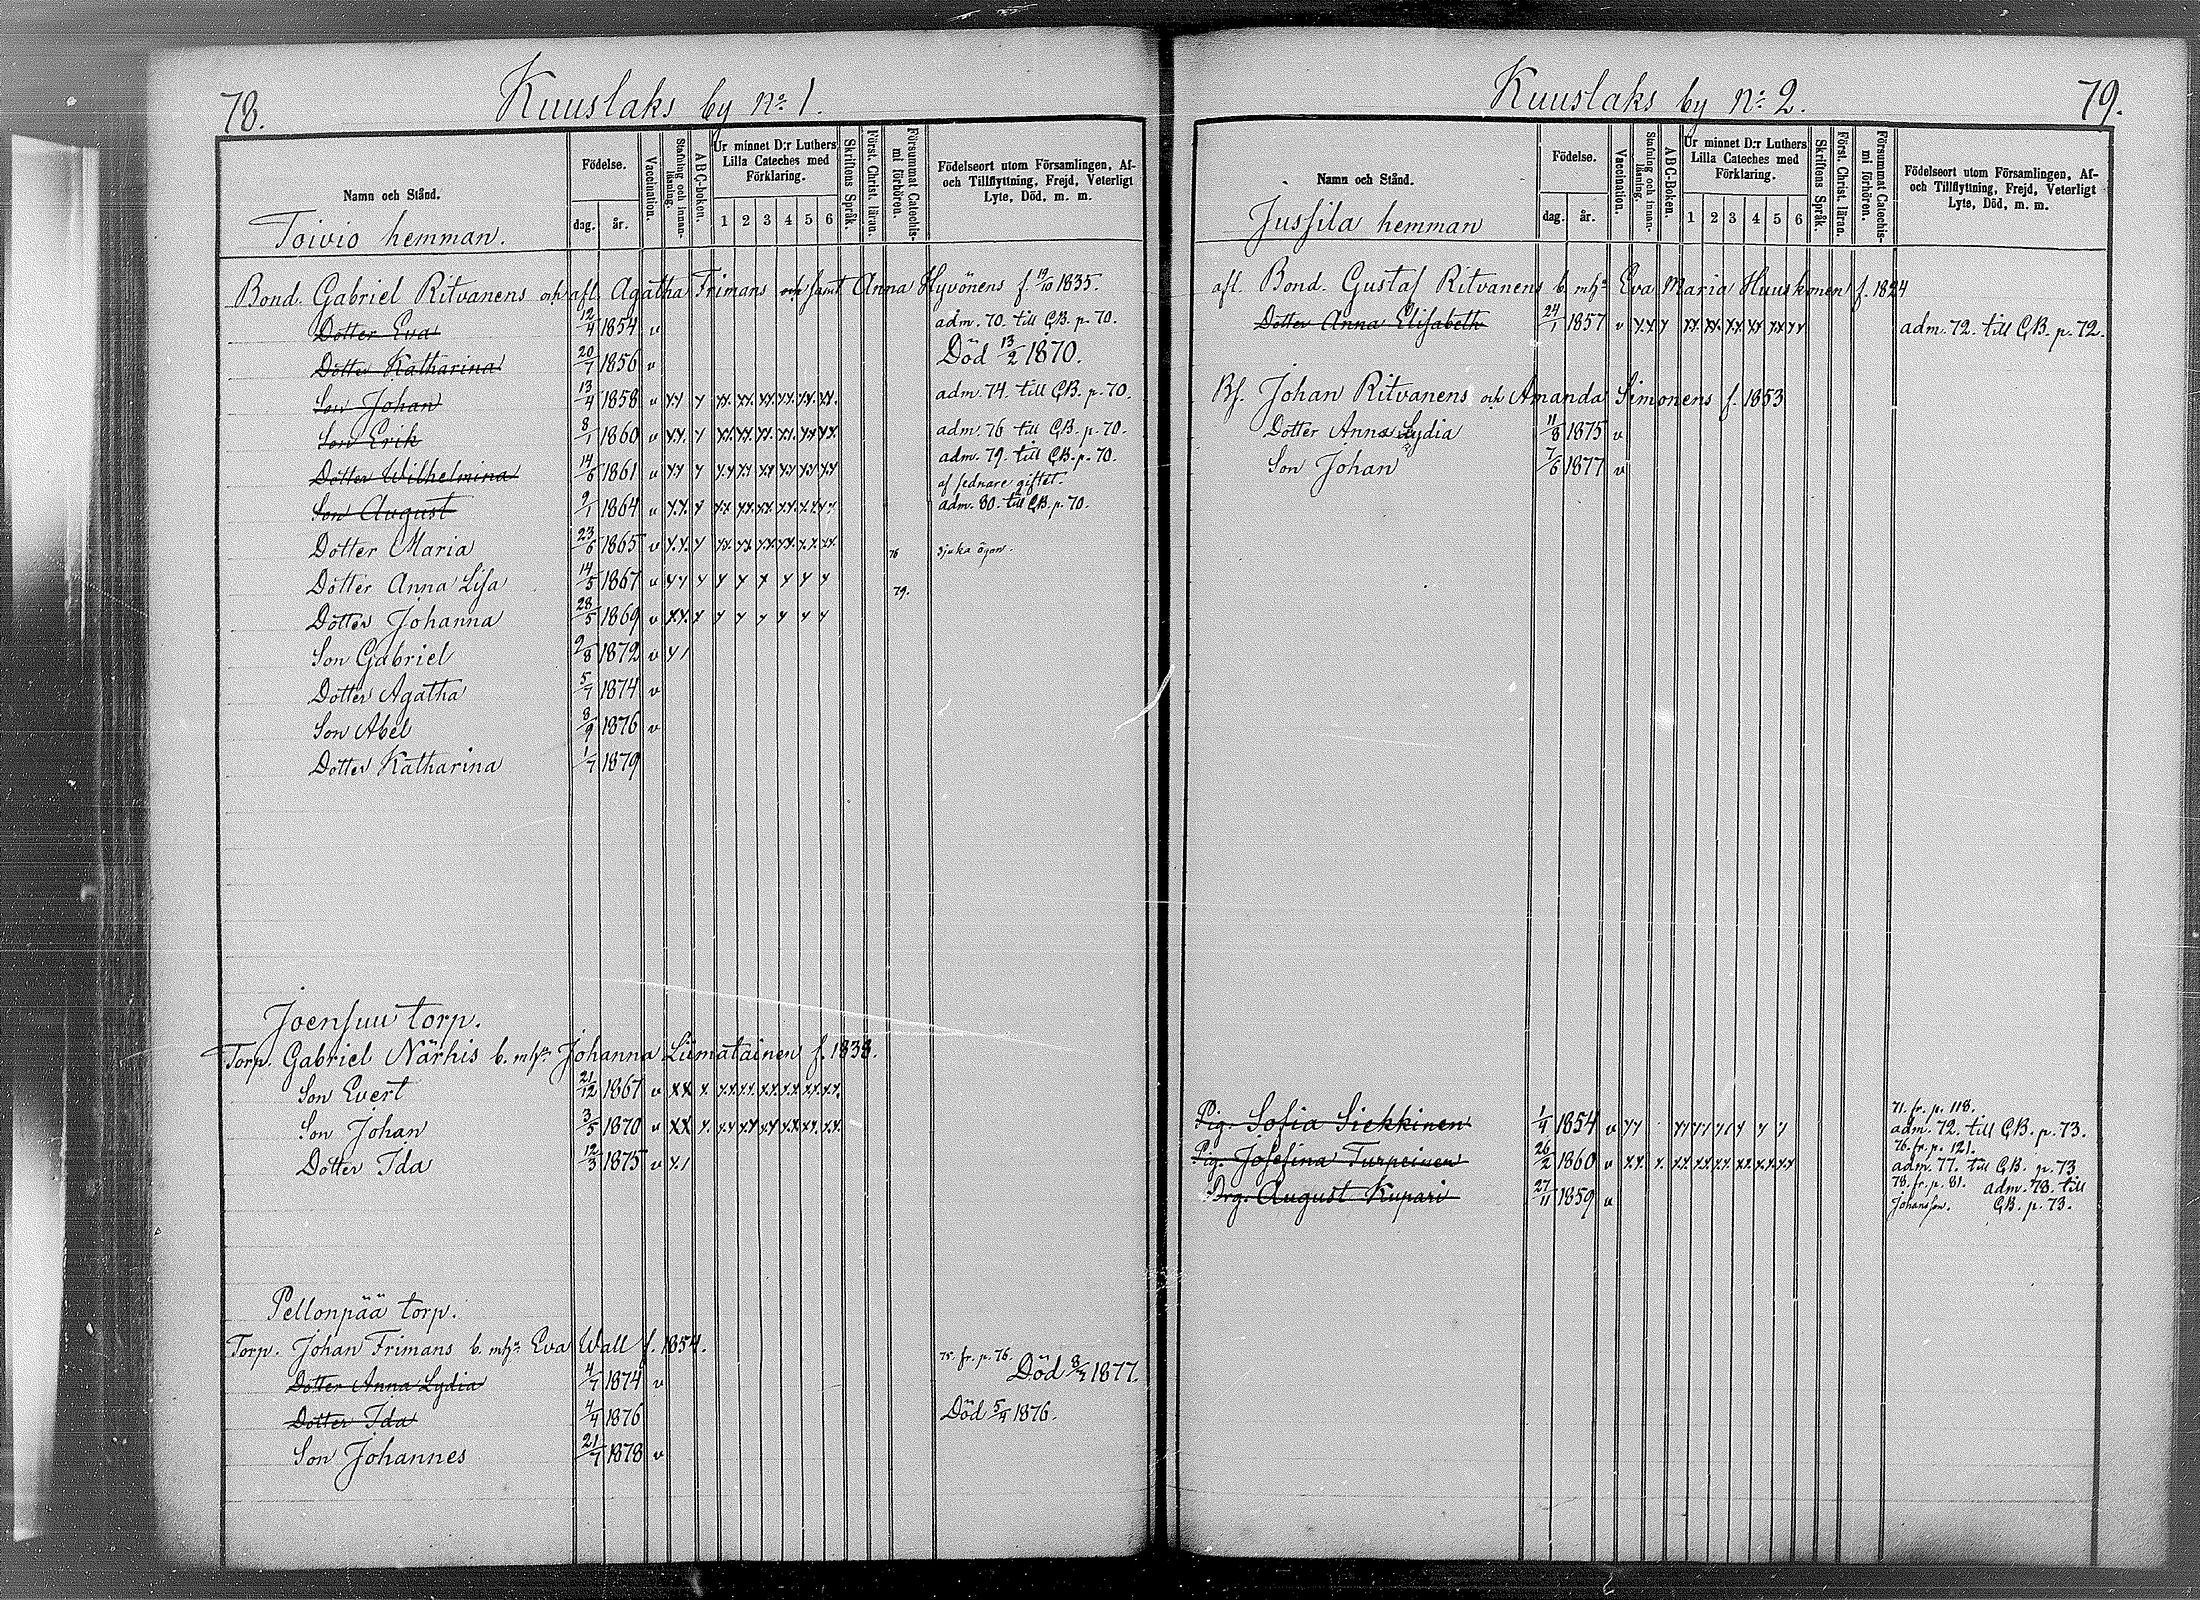 78.
Kuuslaks by No 1.
Namn och Stånd.
Födelse.
dag.
år.
Vaccination.
Stafning och innan-läsning.
A B C-boken.
Ur minnet D:r Luthers Lilla Cateches med Förklaring.
1 2 3 4 5 6
Skriftens Språk.
Först. Christ. läran.
Försummat Catechis-mi förhören.
Födelseort utom Församlingen, Af- och Tillflyttning, Frejd, Veterligt Lyte, Död, m. m.
Toivio hemman.
Bond. Gabriel Ritvanens och afl. Agatha Frimans och samt Anna Hyvönens f. 19/10 1835.
Dotter Eva 12/4 1854 v adm. 70. till C,B. p. 70.
Dotter Katharina 20/7 1856 v Död 13/2 1870.
Son Johan 13/4 1858 v xx x xx. xx. xx. xx. xx. xx. adm. 74. till C,B. p. 70.
Son Erik 8/1 1860 v xx. x xx. xx. xx. xx. xx xx. adm. 76 till C,B. p. 70.
Dotter Wilhelmina 14/6 1861 v xx x xx xx xx xx xx xx adm. 79. till C,B. p. 70.
af sednare giftet.
Son August 9/1 1864 v x.x. x xx xx. xx xx. x.x. xx adm. 80. till C,B. p. 70.
Dotter Maria 23/6 1865 v x.x. x xx. xx. xx. xx. x.x. xx. 76 sjuka ögon.
Dotter Anna Lisa 14/5 1867 v xx x x x x x x x 79.
Dotter Johanna 28/5 1869 v xx. x x x x x x x
Son Gabriel 2/8 1872 v x/
Dotter Agatha 5/7 1874 v
Son Abel 8/9 1876 v
Dotter Katharina 1/7 1879
Joensuu torp.
Torp. Gabriel Närhis b. m. h:n Johanna Liimatainen f. 1838.
Son Evert 21/12 1867 v xx x. xx xx. xx. xx xx. xx.
Son Johan 3/5 1870 v xx x. xx xx xx xx xx. xx.
Dotter Ida 12/3 1875 v x/
Pellonpää torp.
Torp. Johan Frimans b. m. h:n Eva Wall f. 1854.
Dotter Anna Lydia 4/7 1874 v 75. fr. p. 76. Död 1877.
Dotter Ida 4/4 1876 Död 5/4 1876.
Son Johannes 21/7 1878 v
79.
Kuuslaks by No 2.
Namn och Stånd.
Födelse.
dag.
år.
Vaccination.
Stafning och innan-läsning.
A B C-Boken.
Ur minnet D:r Luthers Lilla Cateches med Förklaring.
1 2 3 4 5 6
Skriftens Språk.
Först. Christ. lärana.
Försummat Catechis-mi förhören.
Födelseort utom Församlingen, Af- och Tillflyttning, Frejd, Veterligt Lyte, Död, m. m.
Jussila hemman
afl. Bond. Gustaf Ritvanens b. m. h:n Eva Maria Huuskonen f. 1824
Dotter Anna Elisabeth 24/1 1857 v x.x x xx. xx. xx xx xx xx adm. 72. till C,B. p. 72.
Bs. Johan Ritvanens och Amanda Simonens f. 1853
Dotter Anna Lydia 11/8 1875 v
Son Johan 7/6 1877 v
Pig. Sofia Siekkinen 1/4 1854 v xx x/ x/ x/ x x x 71. fr. p. 118. adm. 72. till C,B. p. 73.
Pig. Josefina Turpeinen 26/2 1860 v xx. x. xx xx xx. xx. xx xx 76. fr. p. 121. adm. 77. till C,B. p. 73
Drg. August Kupari 27/11 1859 v 78. fr. p. 81. adm. 78. till
Johansson. C,B. p. 73.